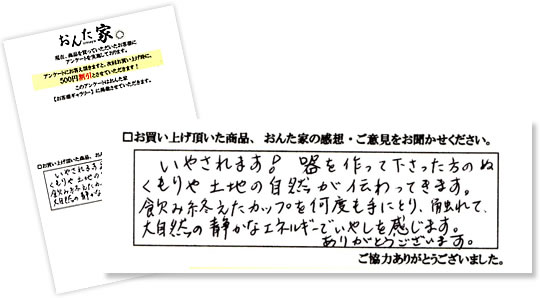 おんた家。
現在、商品を買っていただいたお客様に
アンケートを実施しております。
アンケートにお答え頂きますと、次回お買い上げ時に、
500円割引とさせていただきます!
このアンケートはおんた家
【お客様ギャラリー】に掲載させていただきます。
□お買い上げ頂いた商品、おん
いやされます
くもりや土地の
飲み終えたカッ
大自然の静かな
□お買い上げ頂いた商品、おんた家の感想・ご意見をお聞かせください。
いやされます! 器を作って下さった方のぬ
くもりや土地の自然が伝わってきます。
飲み終えたカップを何度も手にとり、触れて、
大自然の静かなエネルギーでいやしを感じます。
ありがとうございます。
ご協力ありがとうございました。